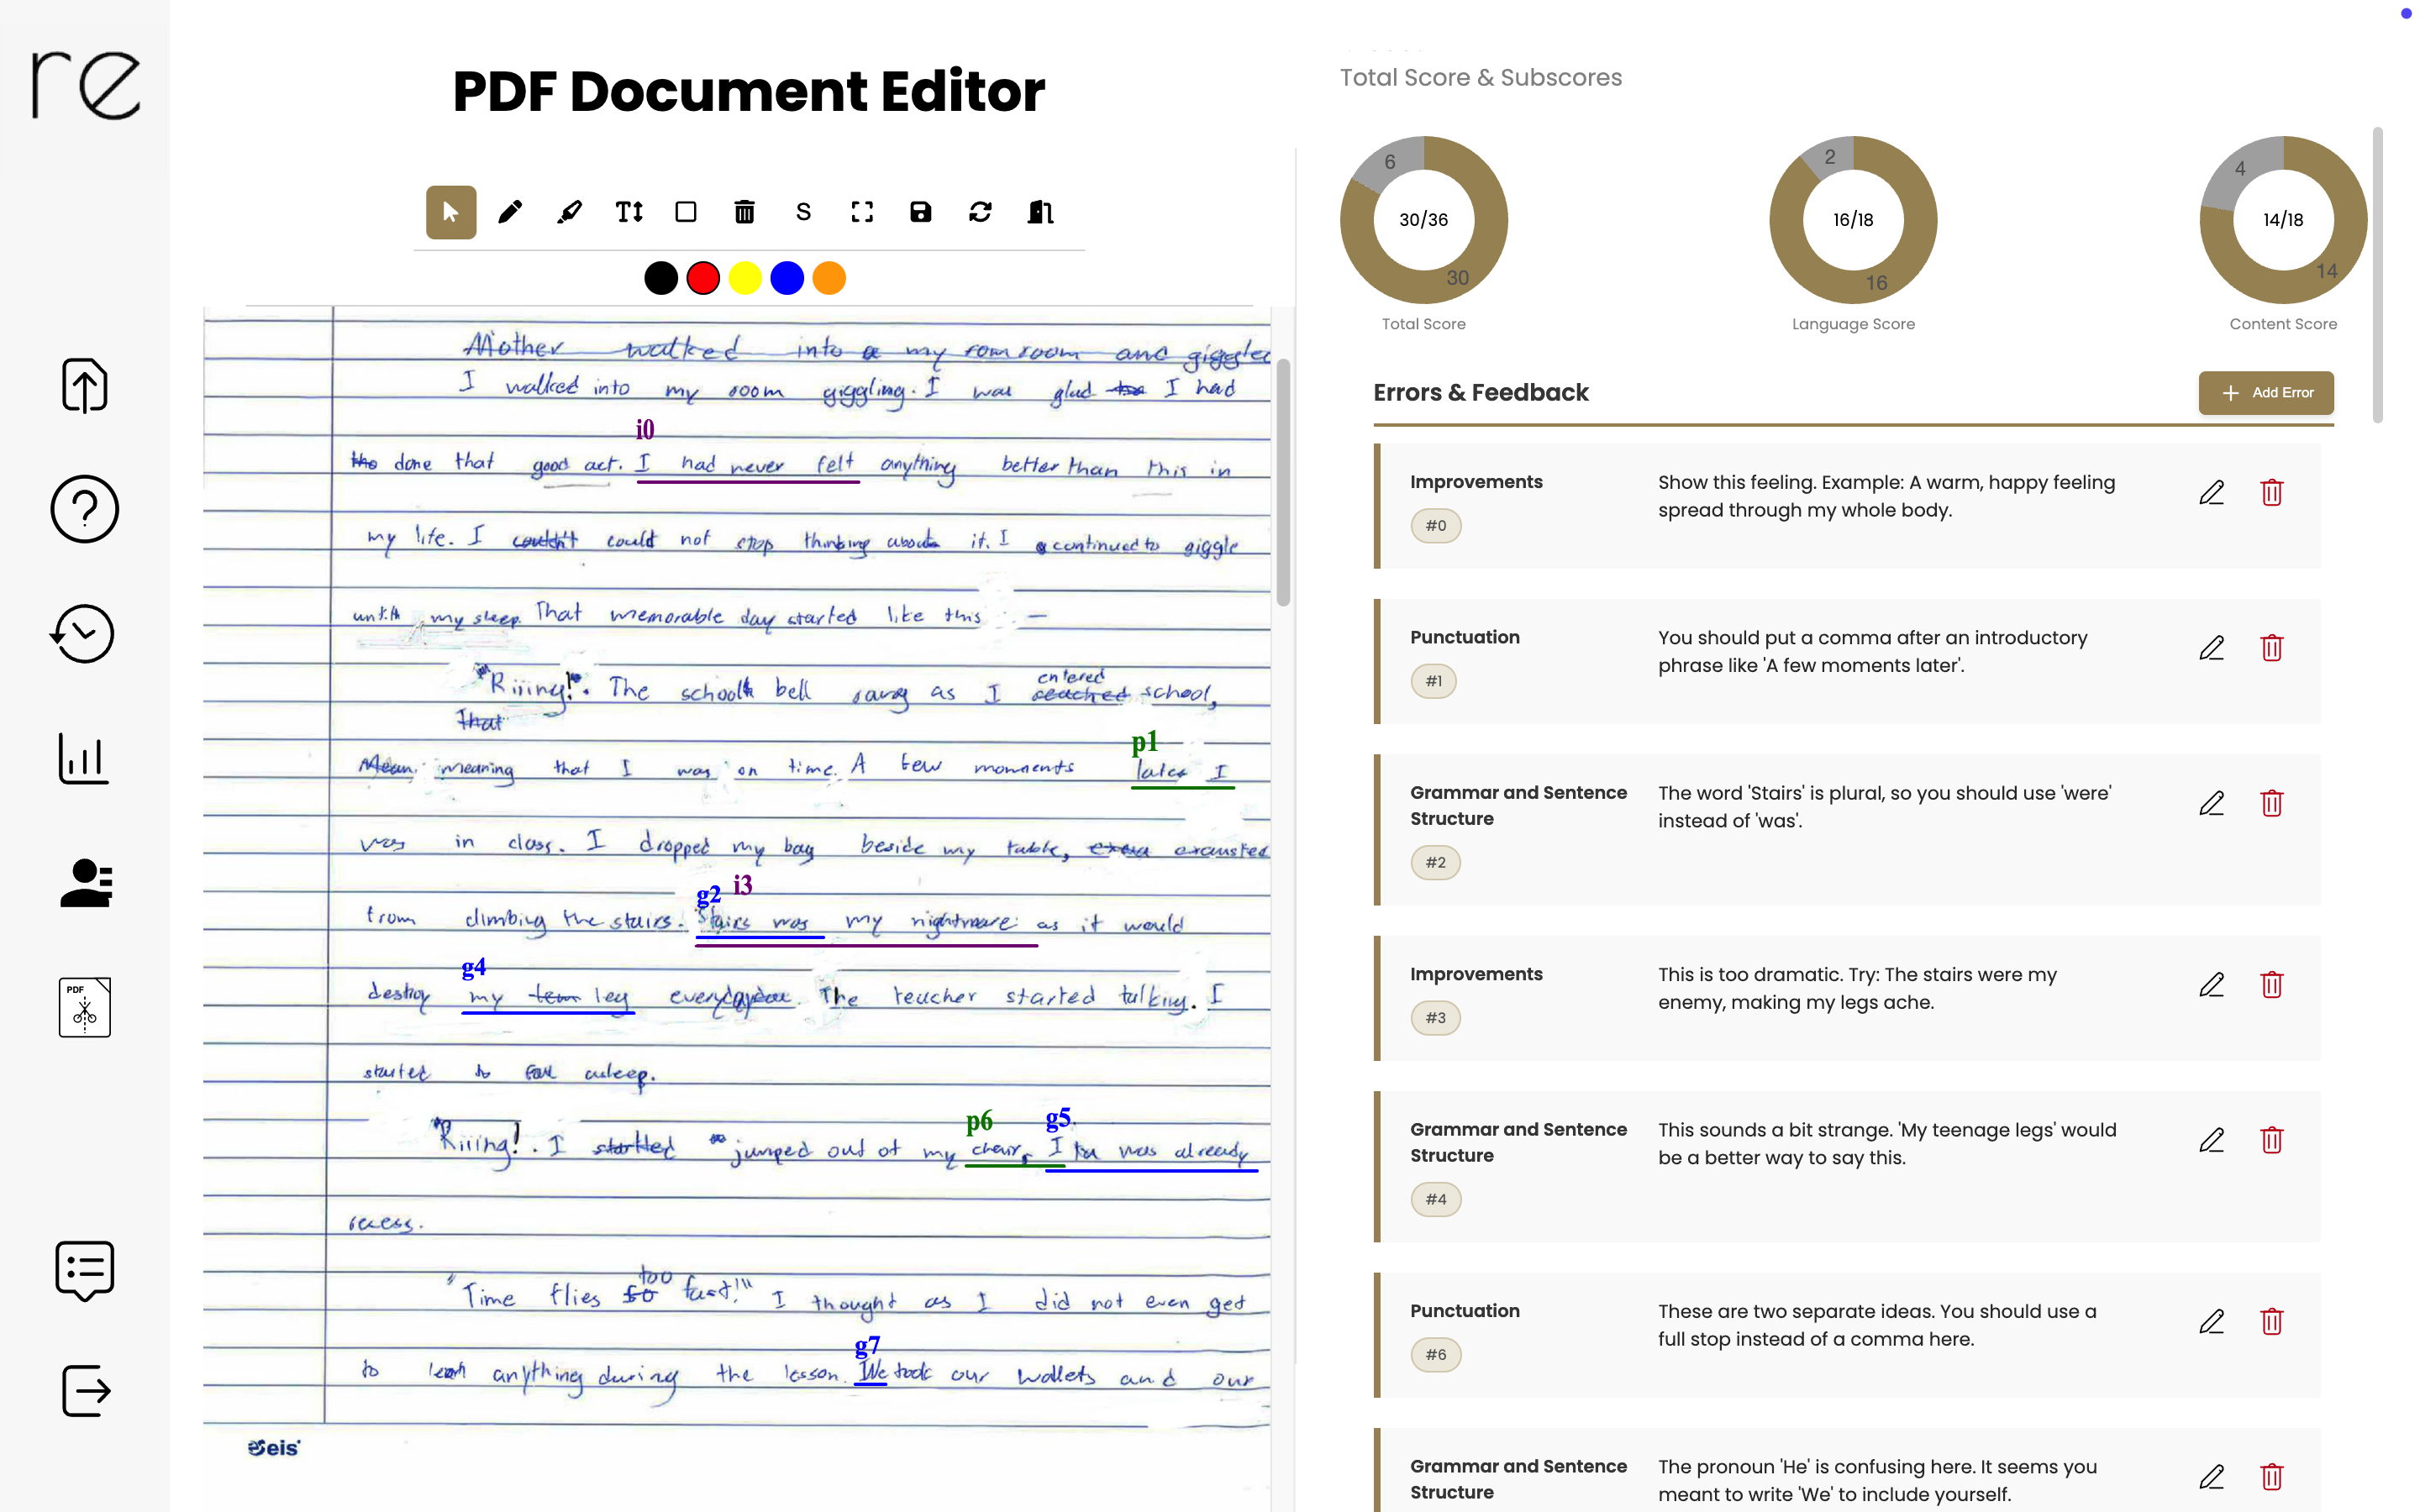 re
PDF Document Editor
S
Mother walked into a my rom room and giggled
I walked into my room giggling. I was glad I had
i0
the done that good act. I had never felt anything better than this in
my life. I couldn't could not stop thinking about it. I continued to giggle
until my sleep. That memorable day started like this —
"Riiing!". The school bell rang as I reached entered school,
That
Mean. meaning that I was on time. A few moments later I
p1
was in class. I dropped my bag beside my table, exausted
g2 i3
from climbing the stairs. Stairs was my nightmare as it would
g4
destroy my leg everyday. The teacher started talking. I
started to fall asleep.
p6 g5
"Riiing!". I startled jumped out of my chair, I was already
recess.
"Time flies so too fast!" I thought as I did not even get
g7
to learn anything during the lesson. We took our wallets and our
eis
Total Score & Subscores
6
30/36
30
Total Score
2
16/18
16
Language Score
4
14/18
14
Content Score
Errors & Feedback
+ Add Error
Improvements
#0
Show this feeling. Example: A warm, happy feeling
spread through my whole body.
Punctuation
#1
You should put a comma after an introductory
phrase like 'A few moments later'.
Grammar and Sentence
Structure
#2
The word 'Stairs' is plural, so you should use 'were'
instead of 'was'.
Improvements
#3
This is too dramatic. Try: The stairs were my
enemy, making my legs ache.
Grammar and Sentence
Structure
#4
This sounds a bit strange. 'My teenage legs' would
be a better way to say this.
Punctuation
#6
These are two separate ideas. You should use a
full stop instead of a comma here.
Grammar and Sentence
Structure
The pronoun 'He' is confusing here. It seems you
meant to write 'We' to include yourself.
PDF